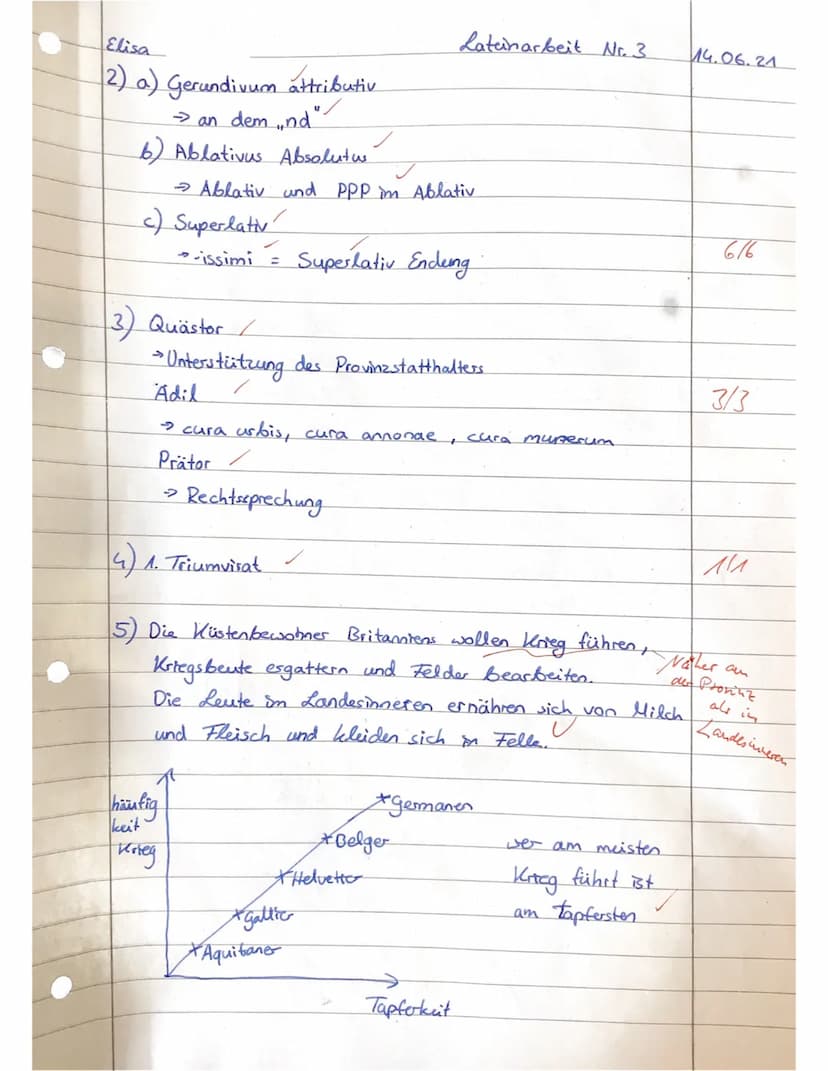 Elisa Lateinarbeit Nr. 3 14.06.21
2) a) Gerundivum attributiv
→ an dem „nd"
b) Ablativus Absolutus
→ Ablativ und PPP im Ablativ
c) Superlativ
→ -issimi = Superlativ Endung
6/6
3) Quästor
→ Unterstützung des Provinzstatthalters
Ädil
3/3
→ cura urbis, cura annonae, cura munerum
Prätor
→ Rechtssprechung
4) 1. Triumvirat
1/1
5) Die Küstenbewohner Britanniens wollen Krieg führen,
Kriegsbeute ergattern und Felder bearbeiten.
Die Leute im Landesinneren ernähren sich von Milch
und Fleisch und kleiden sich in Felle.
Näher an
der Provinz
als im
Landesinneren
häufig
keit
Krieg
Germanen
Belger
Helvetier
Gallier
Aquitaner
Tapferkeit
wer am meisten
Krieg führt ist
am tapfersten